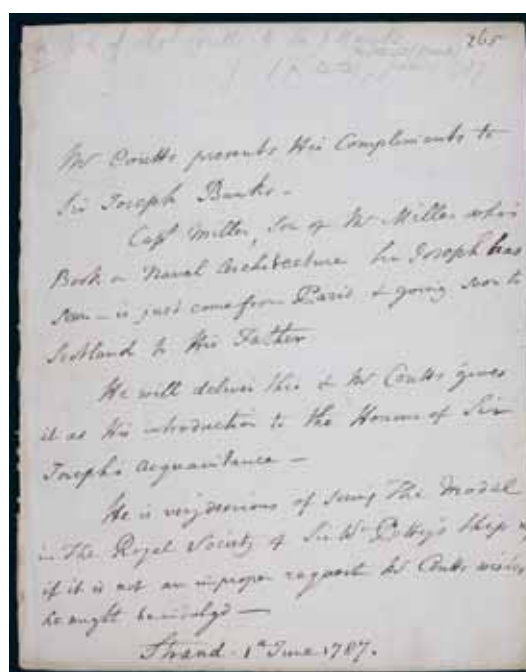 265
Mr Coutts presents His Compliments to
Sir Joseph Banks -
Capt Miller, Son of Mr Miller who's
Book on Naval Architecture Sir Joseph has
seen - is just come from Paris & going soon to
Scotland to His Father
He will deliver this & Mr Coutts gives
it as His introduction to the Honour of Sir
Joseph's acquaintance -
He is very desirous of seeing The Model
in The Royal Society of Sir Wm Petty's Ship &
if it is not an improper request Mr Coutts wishes
he might be indulgd -
Strand. 1st June 1787.